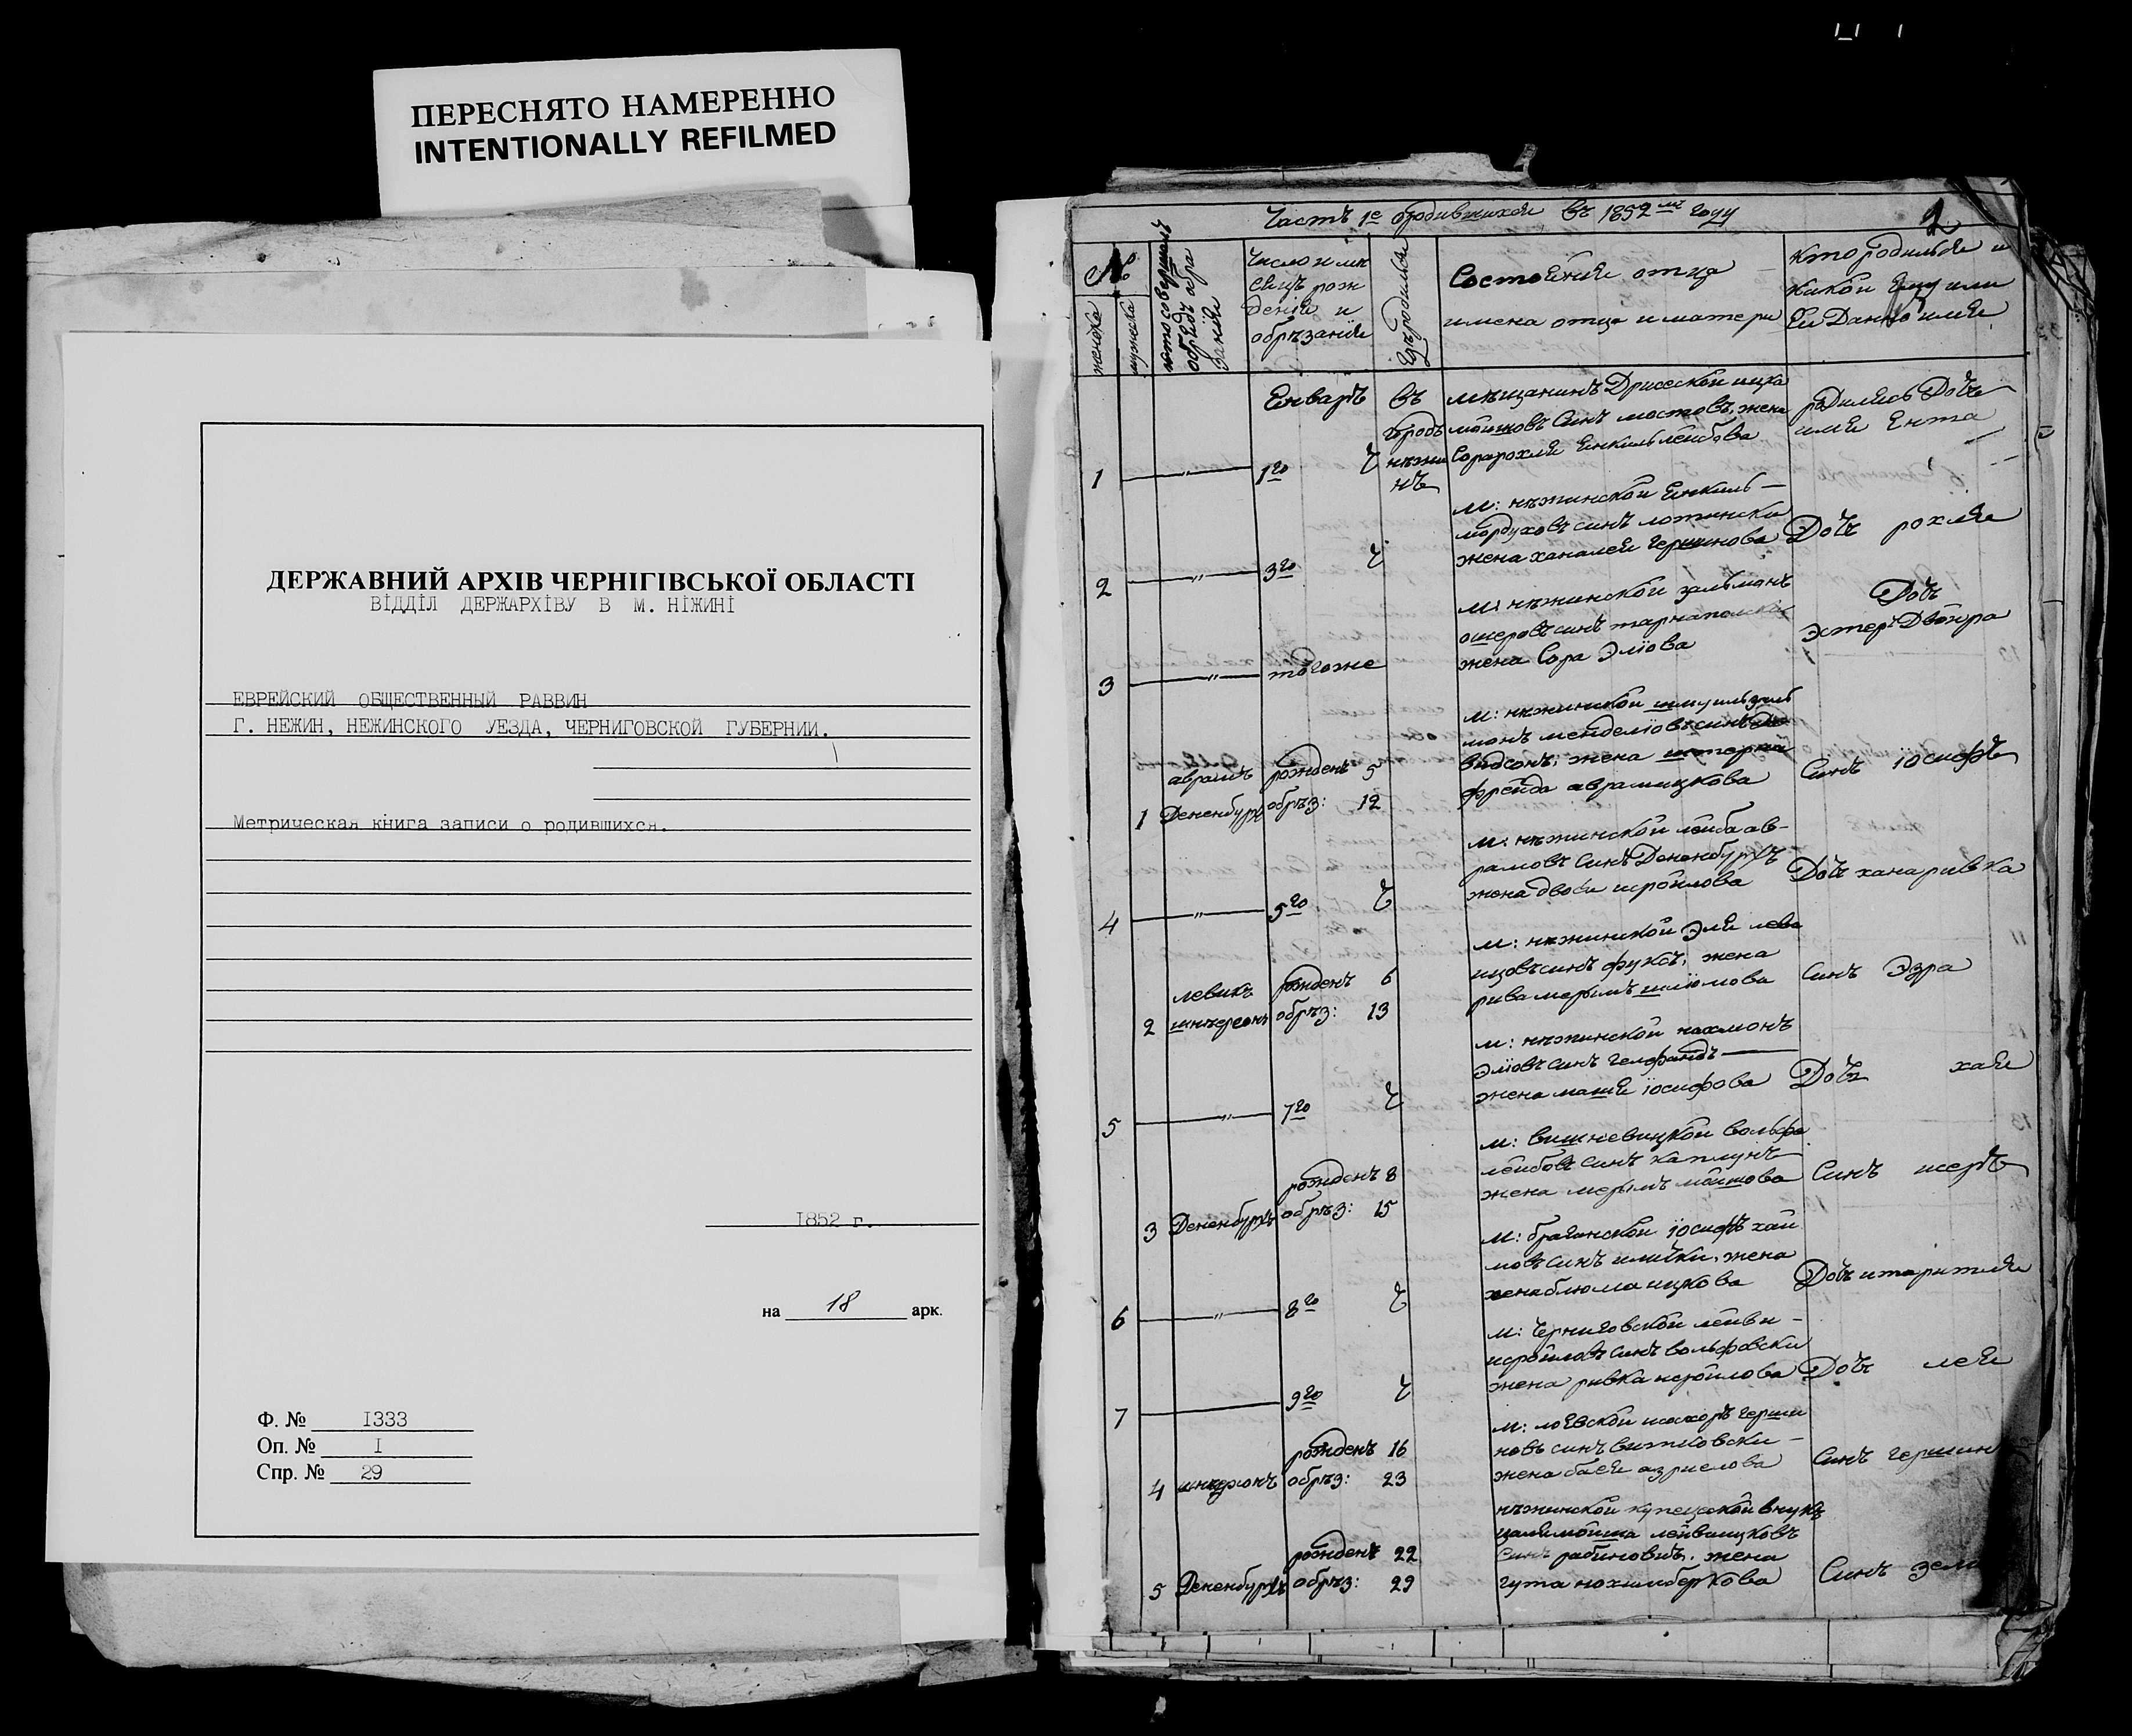 ПЕРЕСНЯТО НАМЕРЕННО
INTENTIONALLY REFILMED
ДЕРЖАВНИЙ АРХІВ ЧЕРНІГІВСЬКОЇ ОБЛАСТІ
ВІДДІЛ ДЕРЖАРХІВУ В М. НІЖИНІ
ЕВРЕЙСКИЙ ОБЩЕСТВЕННЫЙ РАВВИН
Г. НЕЖИН, НЕЖИНСКОГО УЕЗДА, ЧЕРНИГОВСКОЙ ГУБЕРНИИ.
Метрическая книга записи о родившихся.
1852 г.
на 18 арк.
Ф. № 1333
Оп. № 1
Спр. № 29
2
Часть 1е
въ 1852мъ году
№
женска
мужеска
кто совершалъ
обрядъ обре
занія
число и мѣ
сяцъ рож
денія и
обрѣзанія
Состоянія отца
имена отца и матери
кто родился и
какой ему или
ей данно имя
Енварь
въ
городѣ
нѣжи
нѣ
1
1го
мѣщанинъ Дрисской ицка
мовшовъ синъ мостовъ, жена
Сорарохля Енкильлейбова
родилась Дочь
имя Ента
2
3го
м: нѣжинской Енкиль
мордуховъ синъ
жена ханалея Гершнова
Дочь рохля
3
тогоже
м: нѣжинской зальманъ
ошеровъ синъ
жена Сора Эліова
Дочь
Эстеръ Двойра
1
авраамъ
Дененбургъ
рожденъ 5
обрѣз: 12
м: нѣжинской шмуильзаль
манъ менделіовъ синъ Да
видсонъ, жена
фрейда аврамицкова
Синъ іосифъ
4
5го
м: нѣжинской лейба ав-
рамовъ синъ Дененбургъ
жена двося исройлова
Дочь ханаривка
2
левикъ
шнѣерсонъ
рожденъ 6
обрѣз: 13
м: нѣжинской Эля лева
ицовъ синъ фуксъ, жена
рива мерымъ шлюмова
Синъ Эзра
5
7го
м: нѣжинской нахмонъ
Эліовъ синъ гелфандъ
жена маша іосифова
Дочь хая
3
Дененбургъ
рожденъ 8
обрѣз: 15
м: вишневицкой вольфъ
лейбовъ синъ каплунъ
жена мерымъ мовшова
Синъ исеръ
6
8го
м: брагинской іосифъ хаи
мовъ синъ
хенаблюма ицкова
Дочь
7
9го
м: Черниговской лейви
исройловъ синъ вольфовски
жена ривка исройлова
Дочь лея
4
шнѣерсонъ
рожденъ 16
обрѣз: 23
м: лоевской исохоръ герши
новъ синъ витковски
жена бася азриелова
Синъ гершинъ
5
Дененбургъ
рожденъ 22
обрѣз: 29
нѣжинской купецской внукъ
лейваицковъ
синъ рабиновичъ, жена
гута нохимберкова
Синъ